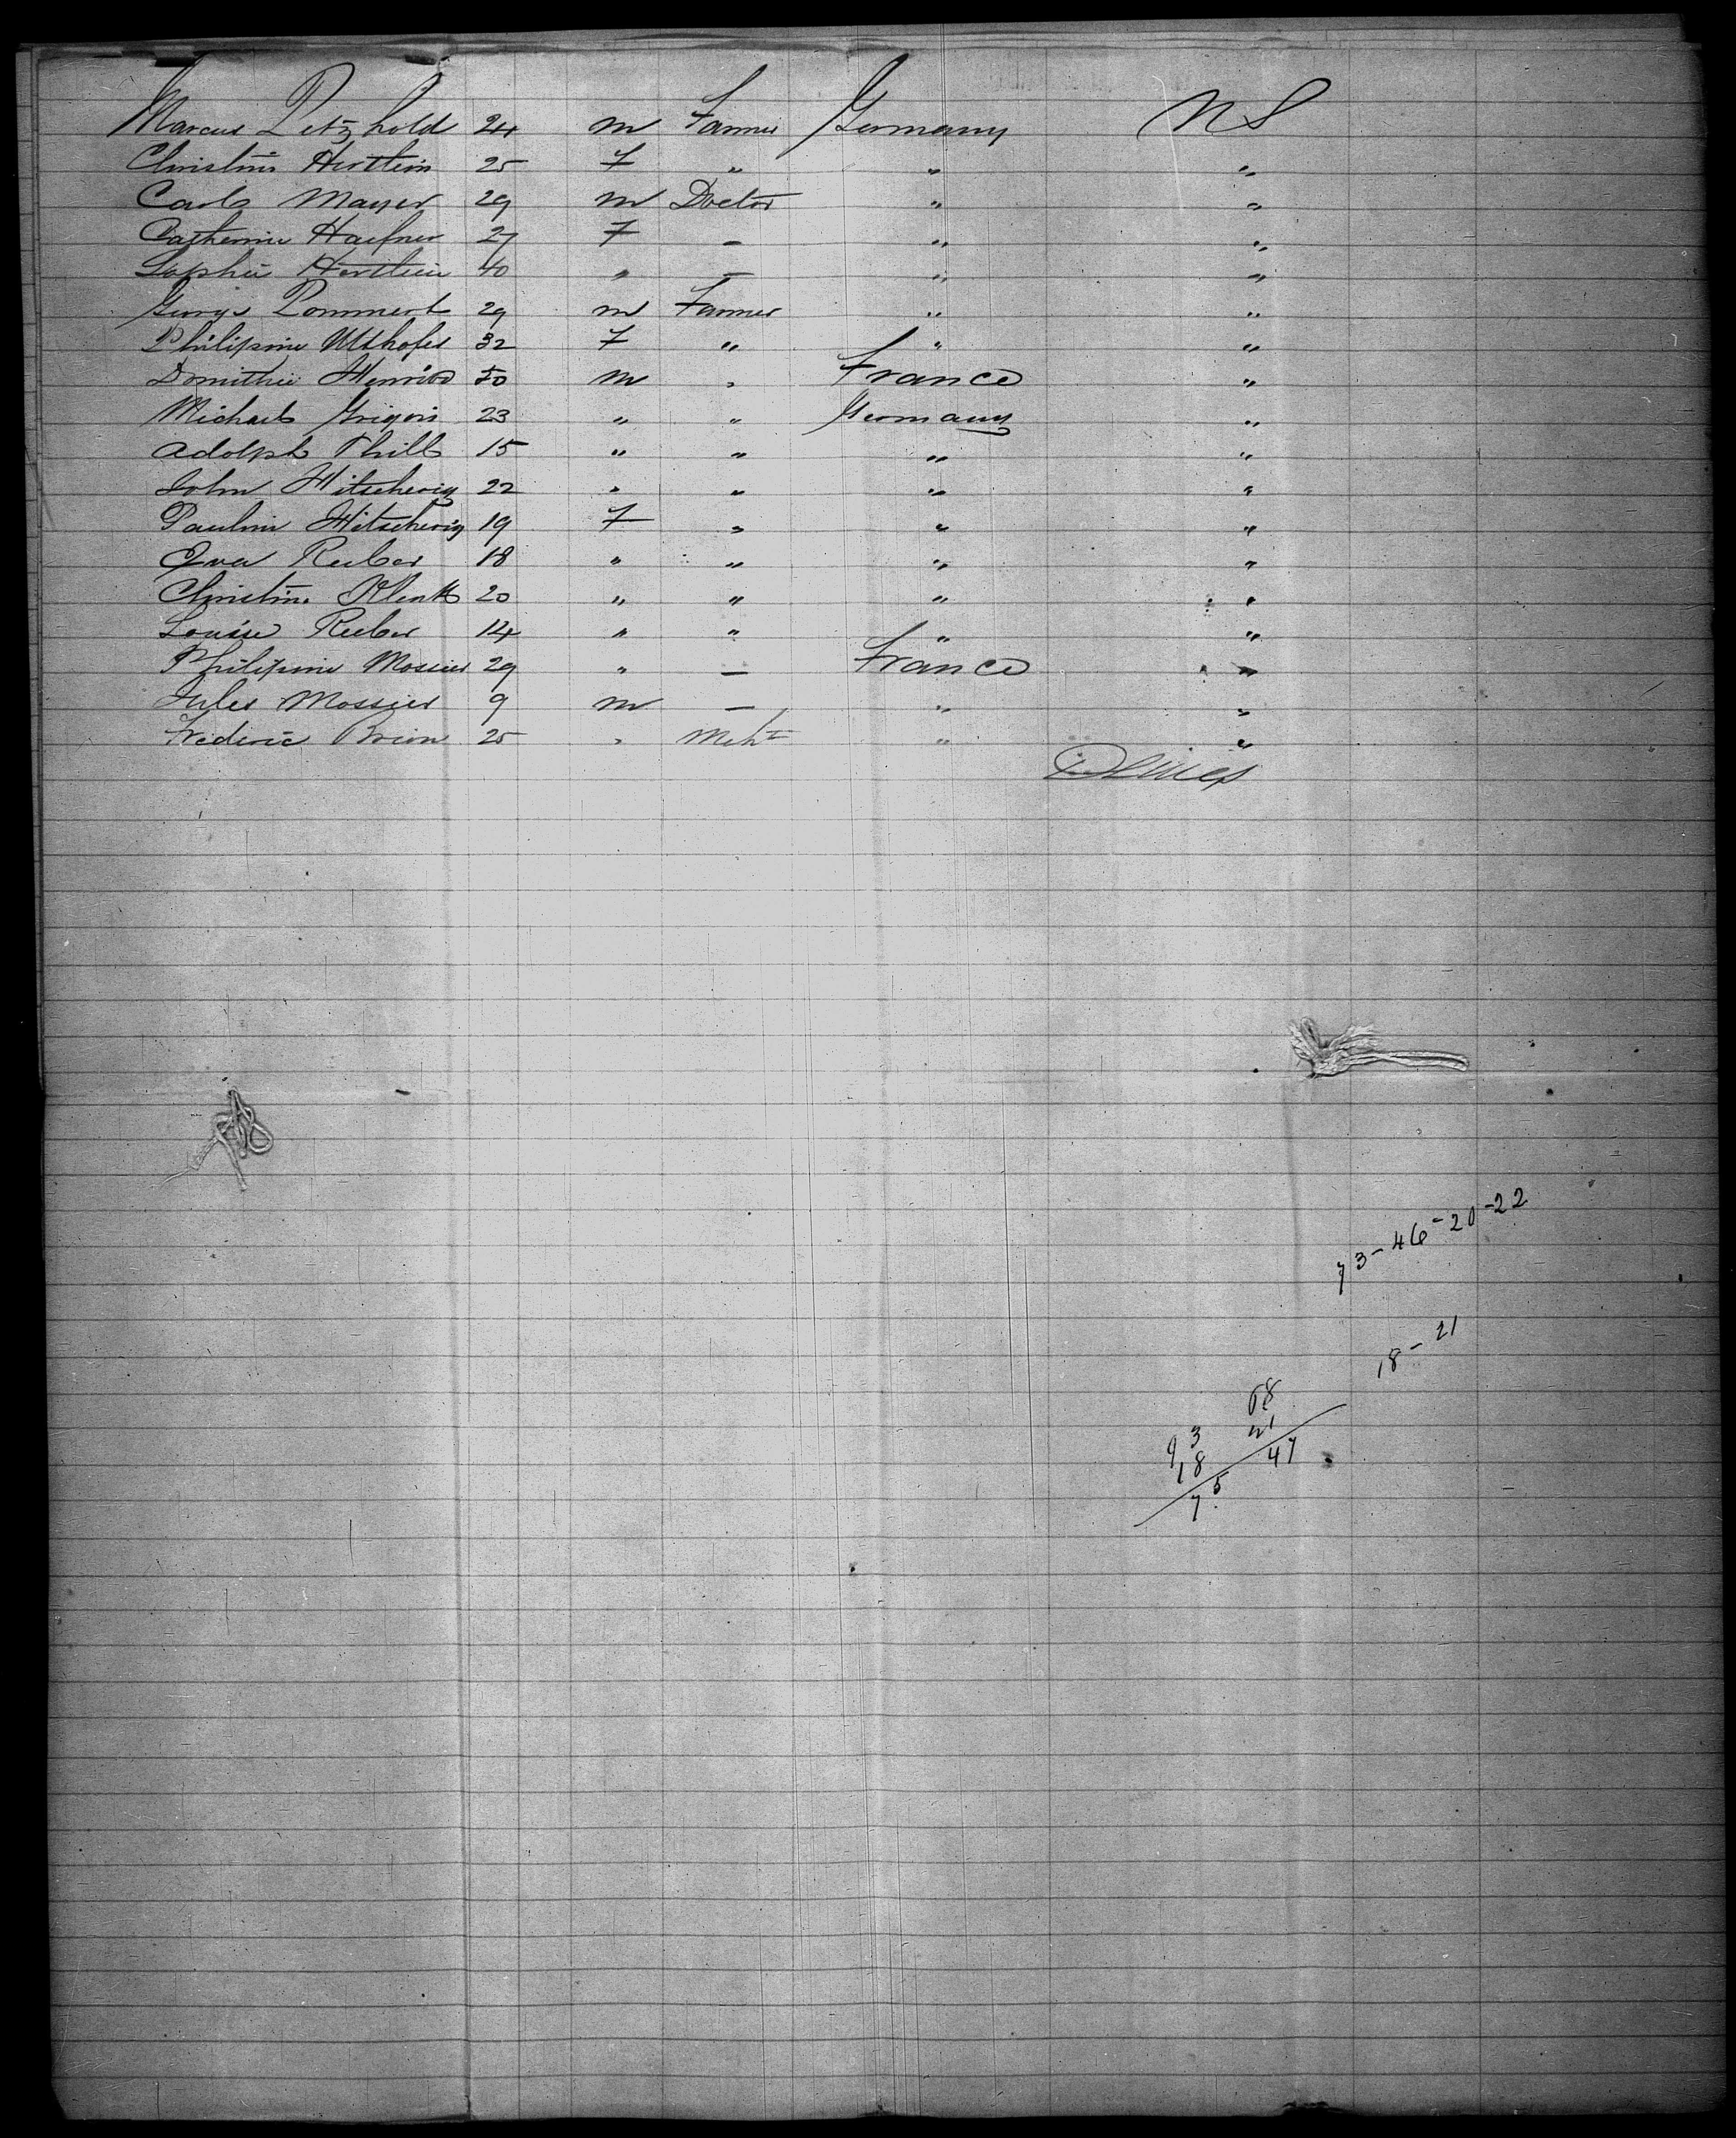 Marcus Petzhold 24 m Farmer Germany N S
Christine Hertlein 25 F " " "
Carl Mayer 29 m Doctor " "
Catherine Haefner 27 F – " "
Sophie Hertlein 40 " – " "
George Pommert 29 m Farmer " "
Philipine Uthofer 32 F " " "
Henriod 50 m " France "
Michael Grigori 23 " " Germany "
Adolph Thill 15 " " " "
John Hitscherig 22 " " " "
Pauline Hitscherig 19 F " " "
Eva Reeber 18 " " " "
Christine Klenk 20 " " " "
Louise Reeber 14 " " " "
Philipine Mossier 29 " – France "
Jules Mossier 9 m – " "
Frederic Brion 25 " Mcht " "
73-46-20-22
18-21
68
21
47
93
18
75